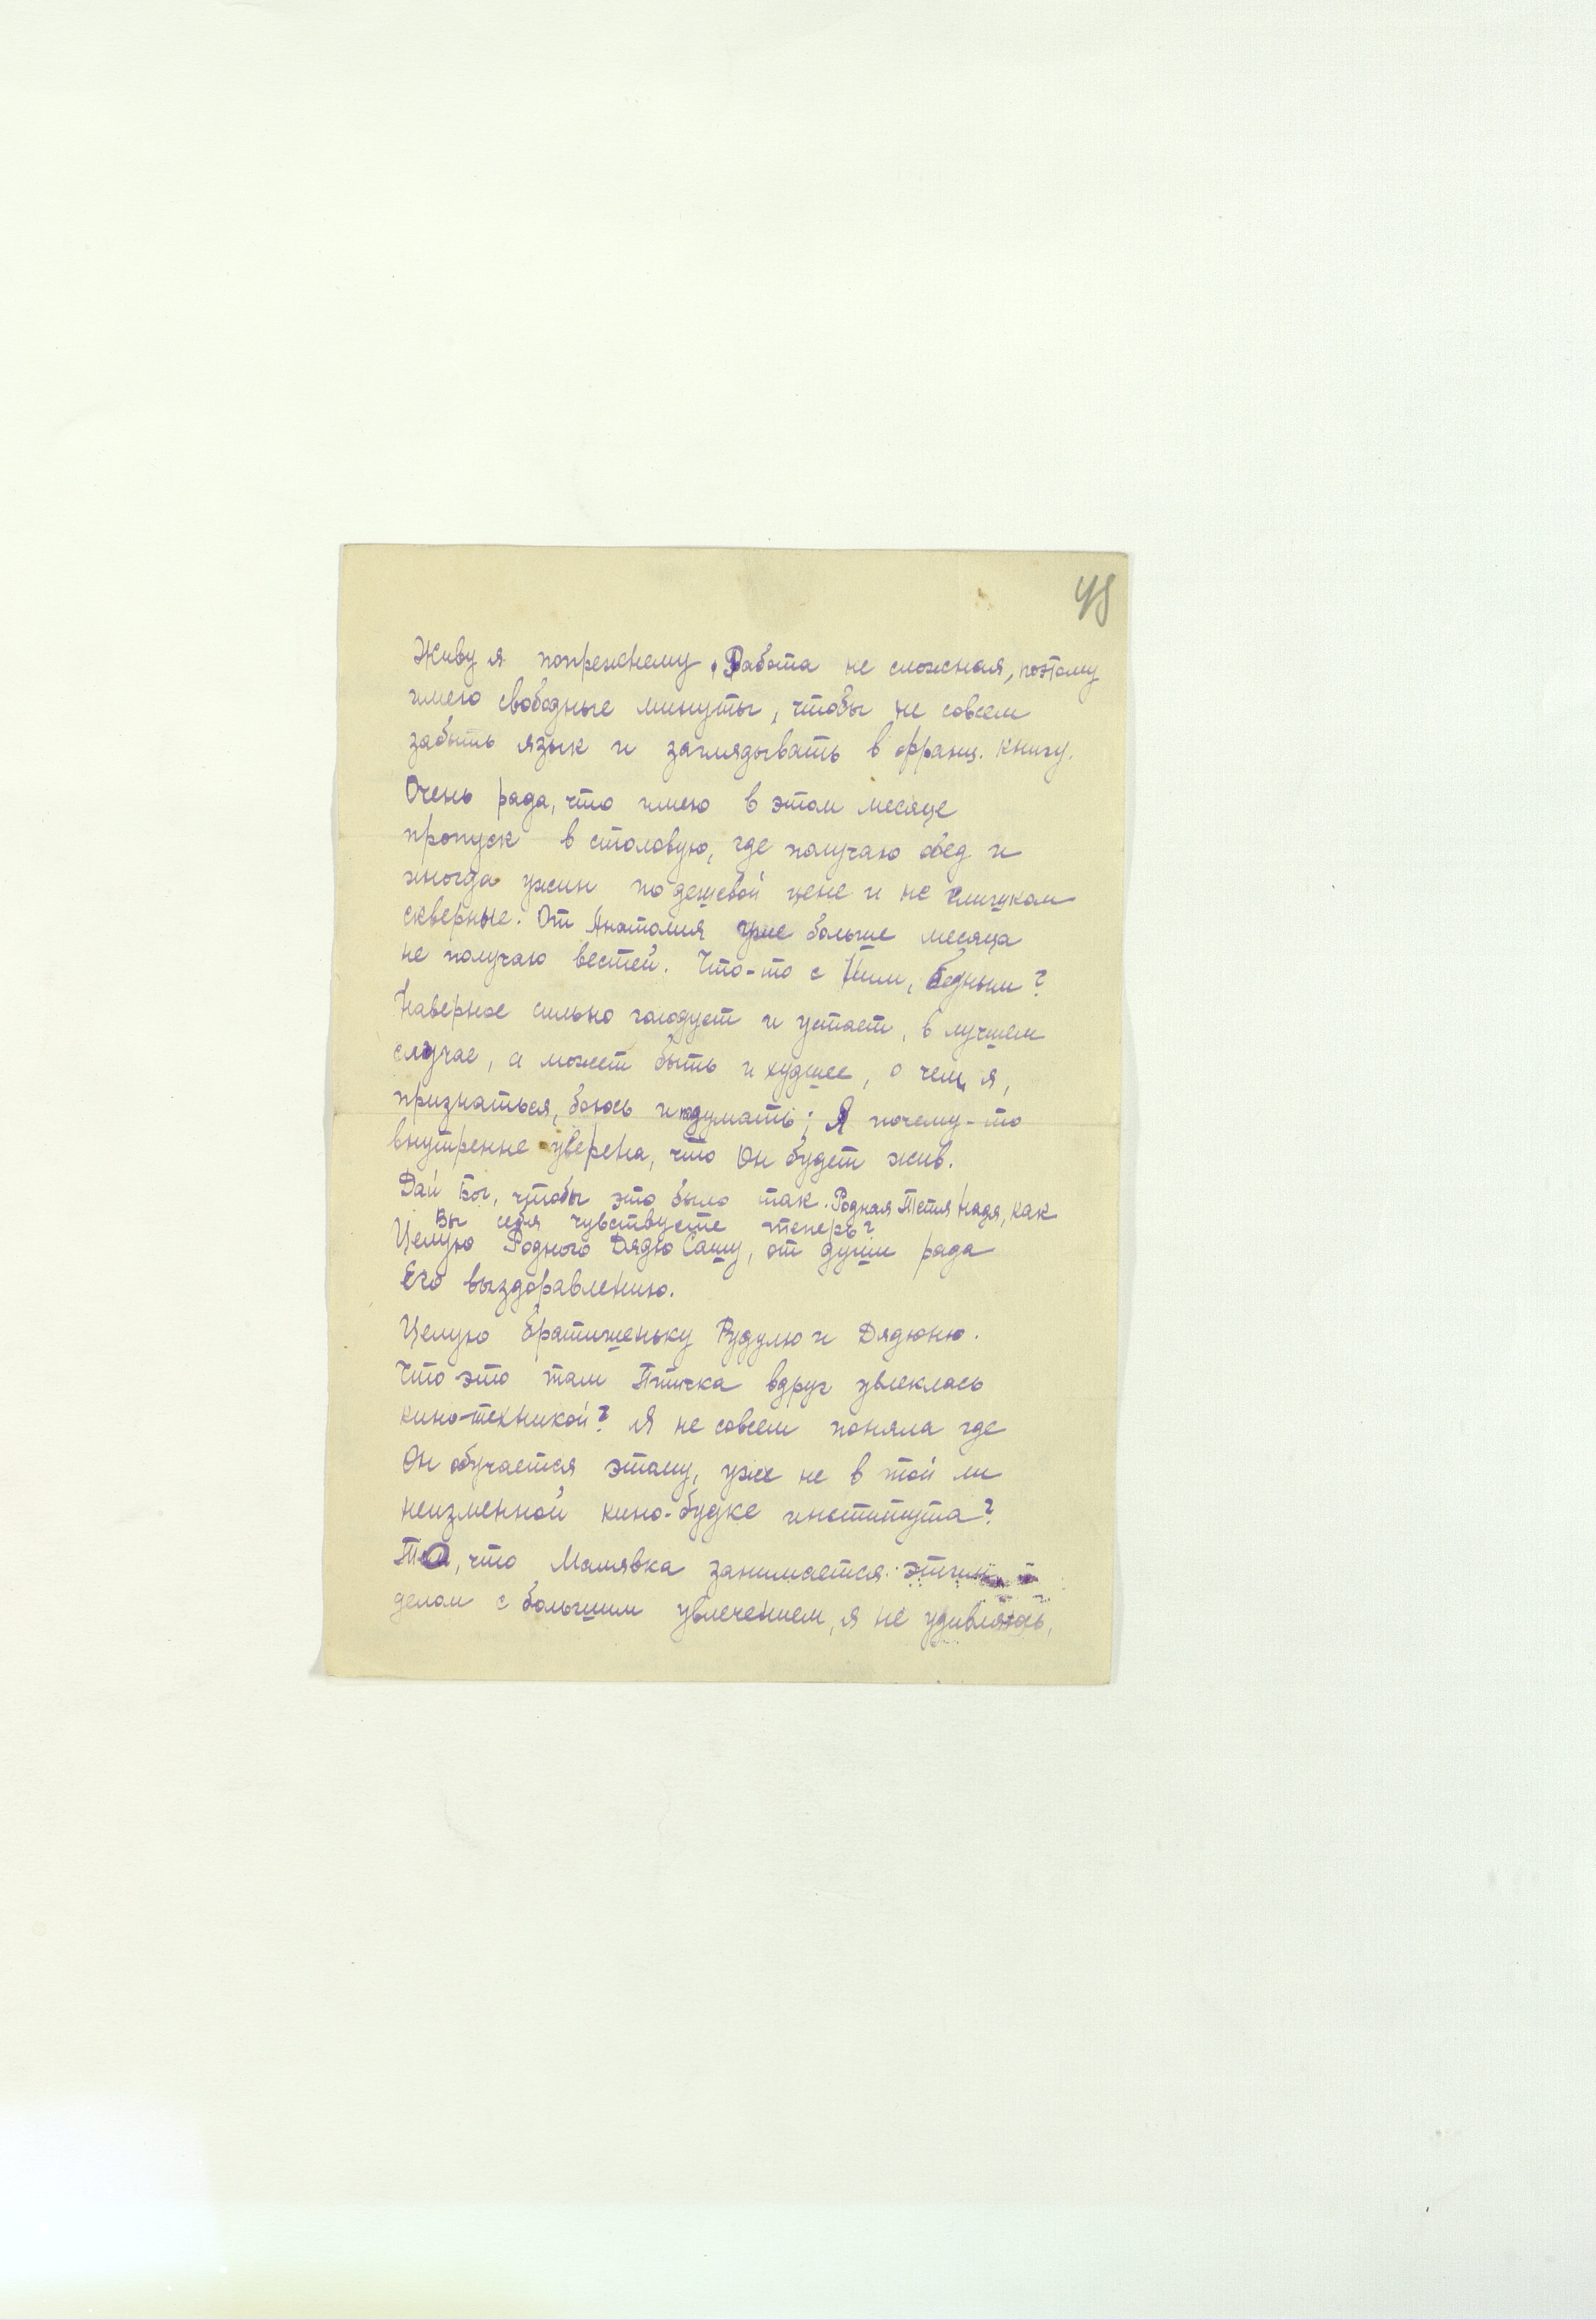 48
Живу я попрежнему. Работа не сложная, поэтому
имею свободные минуты, чтобы не совсем
забыть язык и заглядывать в франц. книгу.
Очень рада, что имею в этом месяце
пропуск в столовую, где получаю обед и
иногда ужин по дешевой цене и не слишком
скверные. От Анатолия уже больше месяца
не получаю вестей. Что-то с Ним, бедным?
Наверное сильно голодует и устает, в лучшем
случае, а может быть и худшее, о чем я,
признаться, боюсь и подумать; Я почему-то
внутренне уверена, что Он будет жив.
Дай Бог, чтобы это было так. Родная Тетя Надя, как
Вы себя чувствуете теперь?
Целую Родного Дядю Сашу, от души рада
Его выздоравлению.
Целую братишеньку Рудулю и Дядюню.
Что это там Птичка вдруг увлеклась
кино-техникой? Я не совсем поняла где
Он обучается этому, уже не в той ли
неизменной кино-будке института?
То, что Малявка занимается этим
делом с большим увлечением, я не удивляюсь,